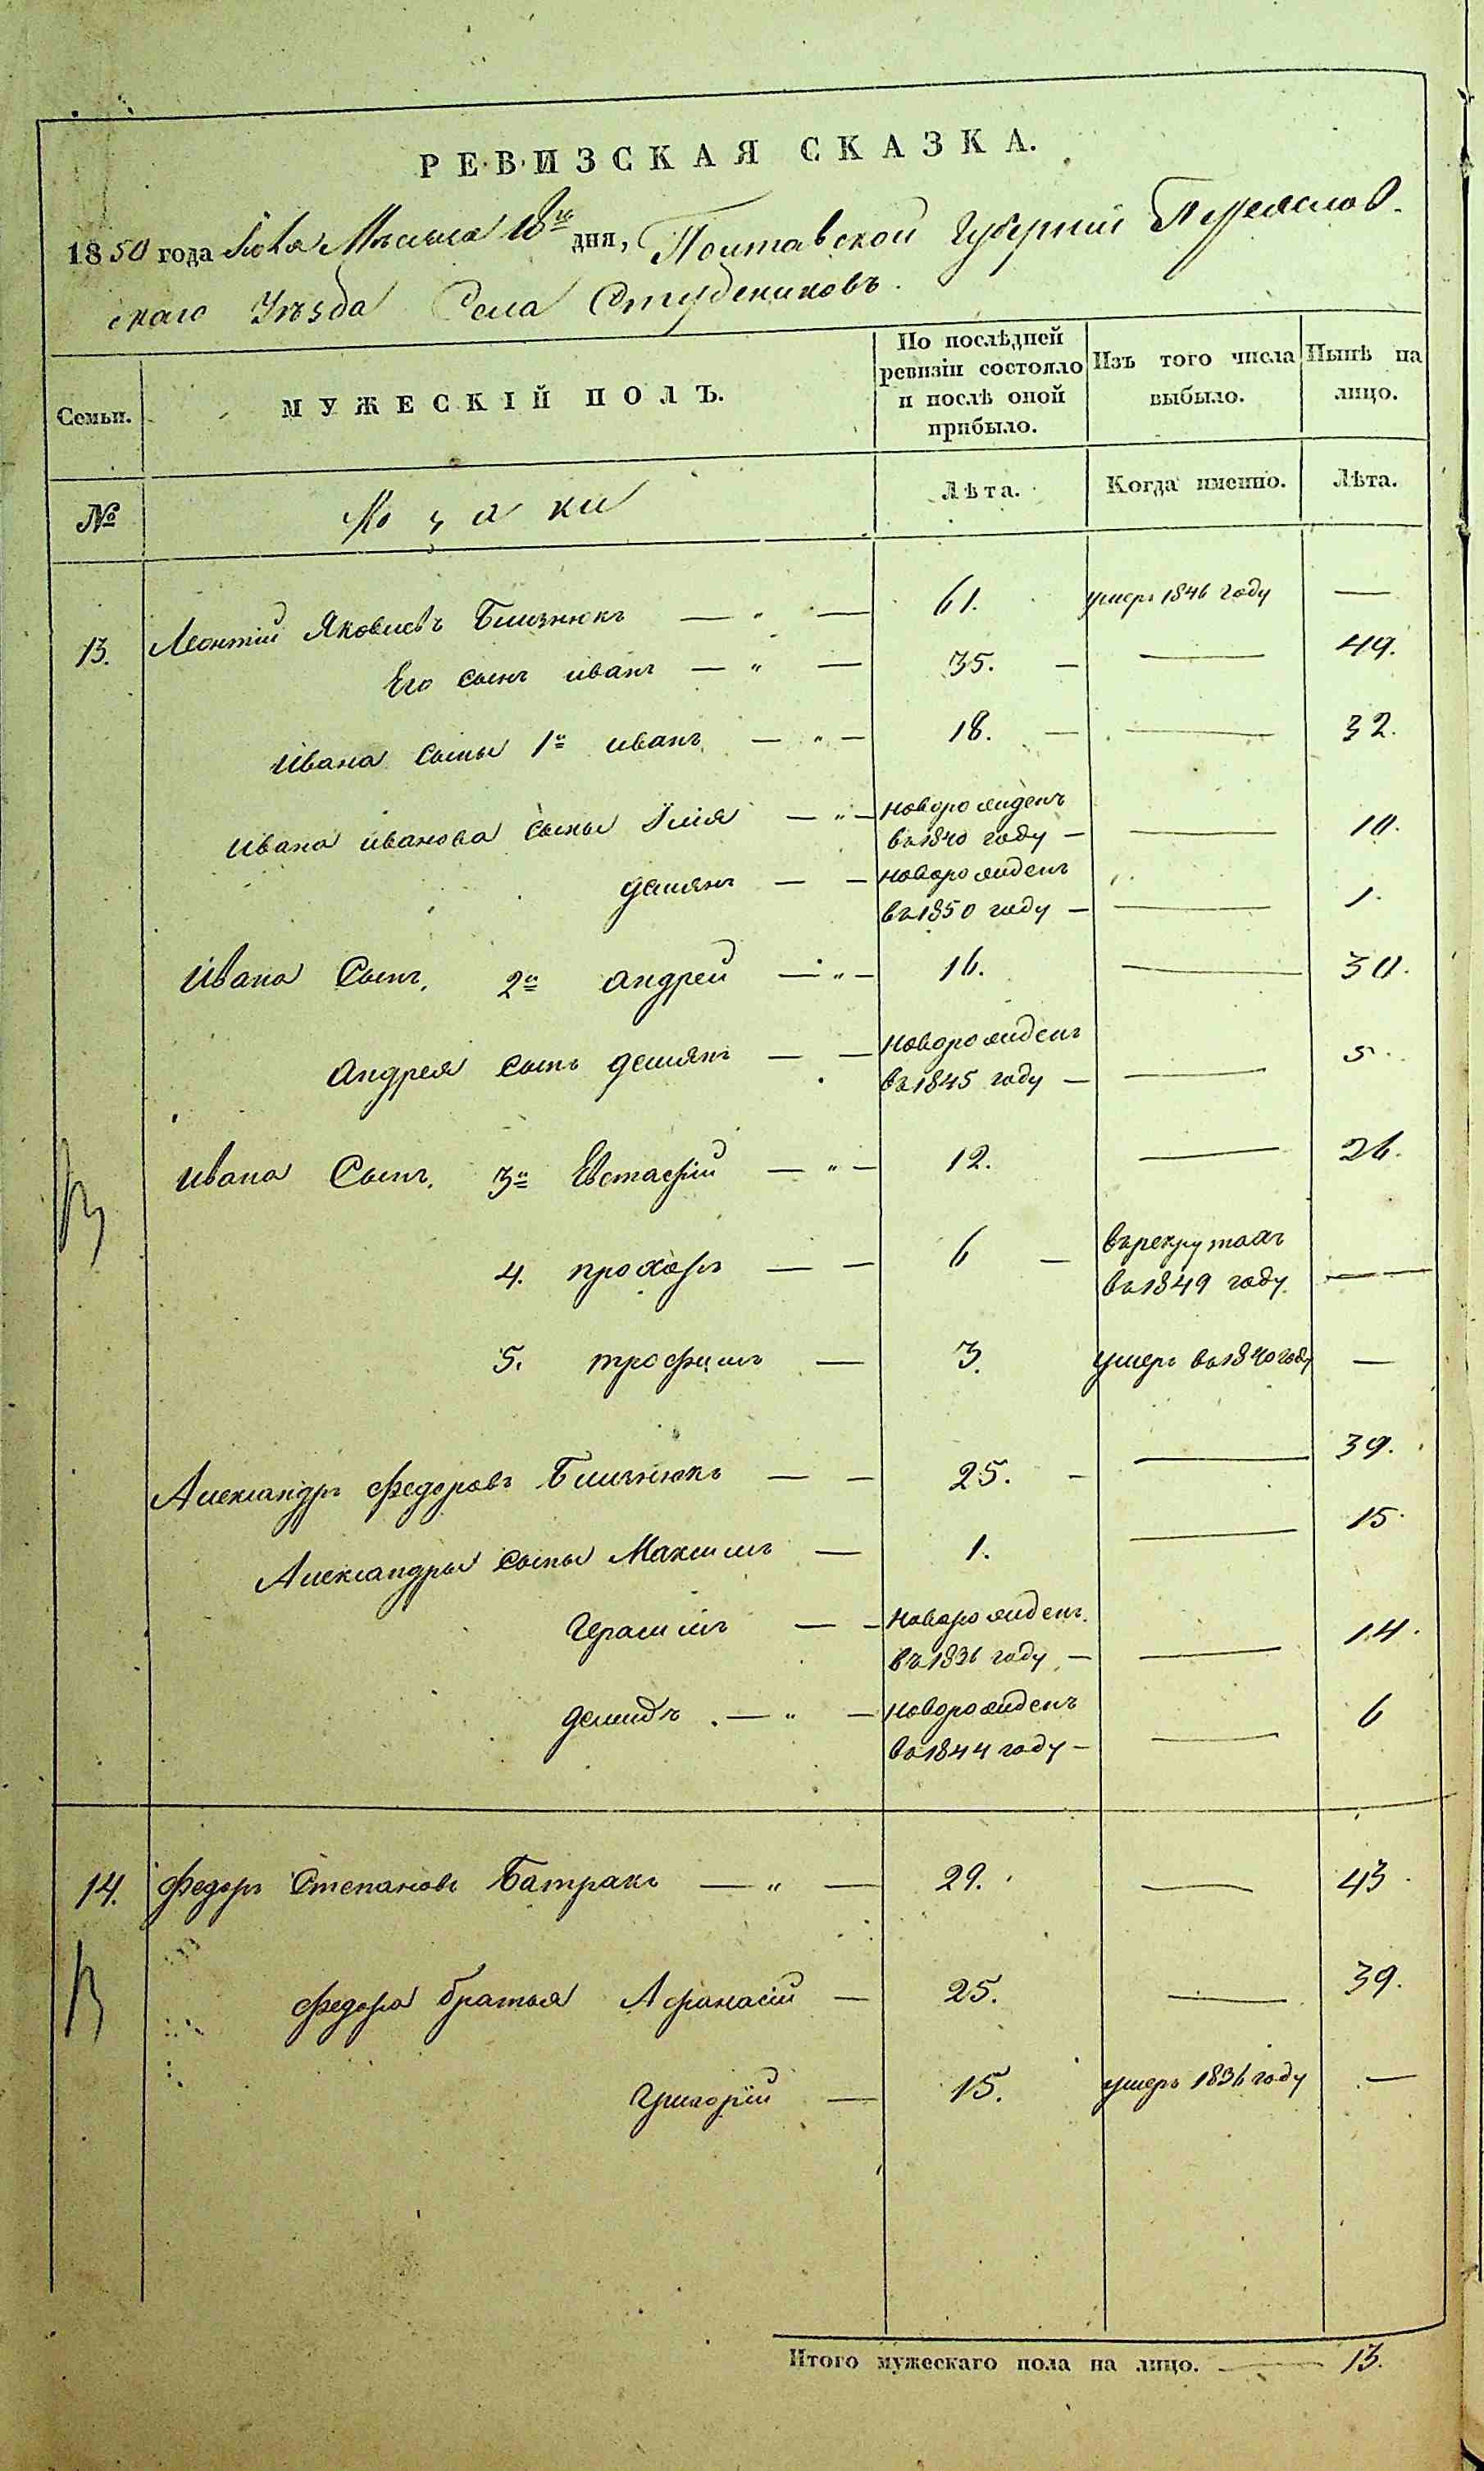 РЕВИЗСКАЯ СКАЗКА.
1850 года Мѣсяца 18го дня, Полтавской Губерніи Переяслов-
скаго Уѣзда Села Студениковъ.
Семьи.
МУЖЕСКІЙ ПОЛЪ.
По послѣдней ревизіи состояло и послѣ оной прибыло.
Изъ того числа выбыло.
Нынѣ на лицо.
№
Козаки
Лѣта.
Когда именно.
Лѣта.
13. Леонтій Яковлевъ Близнюкъ — " — 61. умеръ 1846 году —
Его сынъ иванъ — " — 35. — — 49.
Ивана сыны 1й иванъ — " — 18. — — 32.
Ивана иванова сыны Илія — " — новорожденъ
въ 1840 году — — 10.
демянъ — — новорожденъ
въ 1850 году — — 1.
Ивана Сынъ, 2й андрей — " — 16. — 30.
андрея сынъ демянъ — — новорожденъ
въ 1845 году — — 5.
Ивана Сынъ, 3й Евстафій — " — 12. — 26.
4. прохоръ — — 6 — въ рекрутахъ
въ 1849 году —
5. трофимъ — 3. умеръ въ 1840 году —
Александръ Федоровъ Близнюкъ — — 25. — — 39.
Александры сыны Максимъ — 1. — 15.
Герасимъ — — новорожденъ
въ 1836 году — — 14.
демидъ — " — новорожденъ
въ 1844 году — — 6
14. Федоръ Степановъ Батракъ — " — 29. — 43.
Федора братья Афанасій — 25. — 39.
Григорій — 15. умеръ 1836 году —
Итого мужескаго пола на лицо. — 13.